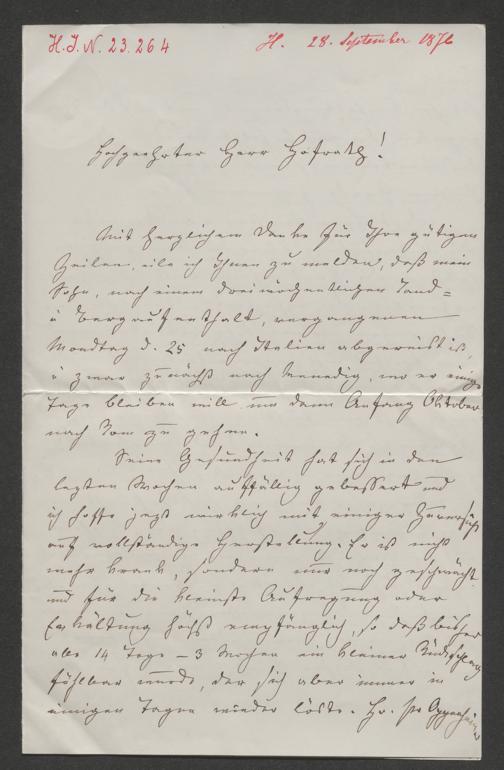 H.I.N. 23.264
H. 28. September 1876
Hochgeehrter Herr Hofrath!
Mit herzlichem Danke für Ihre gütigen
Zeilen, eile ich Ihnen zu melden, daß mein
Sohn, nach einem dreiwöchentlichen Land=
u Bergaufenthalt, vergangenen
Mondtag d. 25 nach Italien abgereist ist,
u zwar zunächst nach Venedig, wo er einige
Tage bleiben will um dann Anfang Oktober
nach Rom zu gehen.
Seine Gesundheit hat sich in den
lezten Wochen auffällig gebessert und
ich hoffe jezt wirklich mit einiger Zuversicht
auf vollständige Herstellung. Er ist nicht
mehr krank, sondern nur noch geschwächt
und für die kleinste Aufregung oder
Erkältung höchst empfänglich, so daß bisher
alle 14 Tage – 3 Wochen ein kleiner Rückschlag
fühlbar wurde, der sich aber immer in
einigen Tagen wieder löste. Hr.